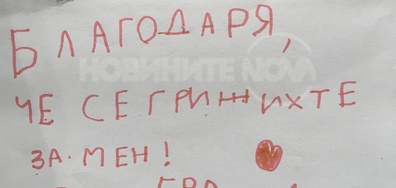 БЛАГОДАРЯ,
НОВИНИТЕ NOVA
ЧЕ СЕ ГРИЖИХТЕ
ЗА МЕН!